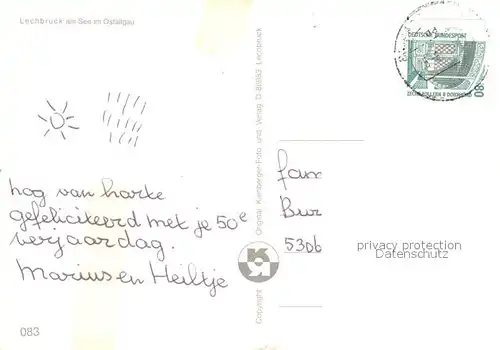 Lechbruck am See im Ostallgäu
DEUTSCHE BUNDESPOST
80
hog van harte
gefeliciteerd met je 50e
verjaardag.
Marius en Heiltje
083
Copyright Original Kienberger-Foto und -Verlag D-86983 Lechbruck
fam
Bur
5306
privacy protection
Datenschutz